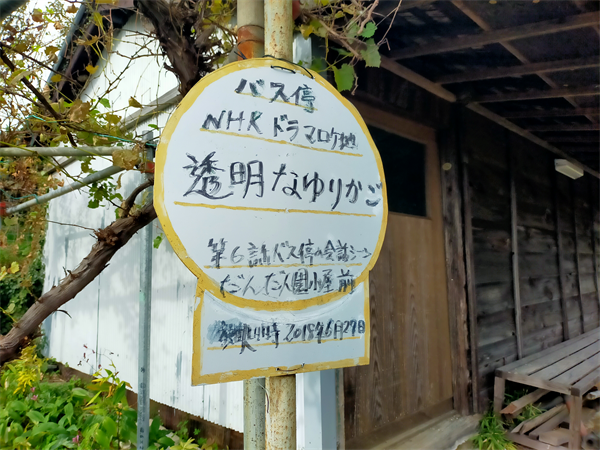 バス停
NHKドラマロケ地
透明なゆりかご
第6話バス停の会話シーン
だんだん園小屋前
2018年6月29日